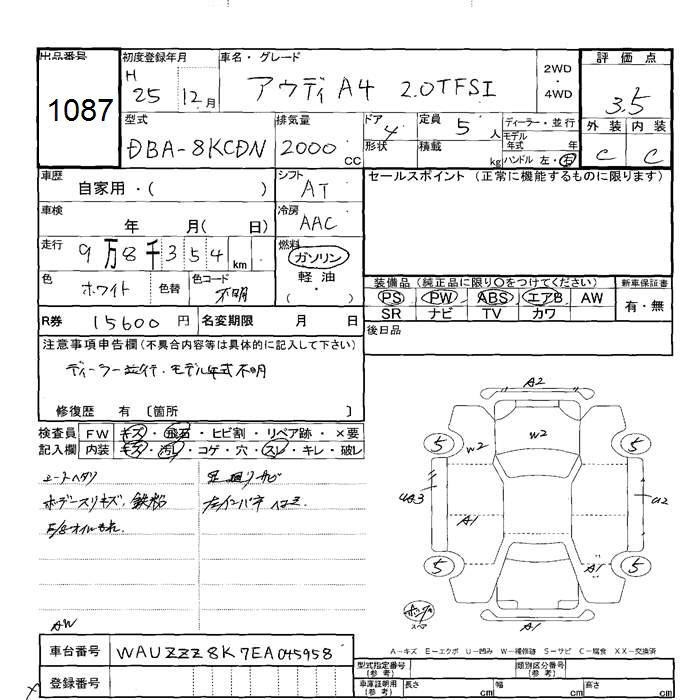 出品番号
1087
初度登録年月
H 25 12月
車名・グレード
アウディ A4 2.0TFSI
2WD
4WD
評価点
3.5
外装 内装
C C
型式
DBA-8KCDN
排気量
2000 CC
ドア 4
形状
定員 5 人
積載 kg
ディーラー・並行
モデル年式 年
ハンドル 左・右
車歴
自家用・( )
シフト
AT
車検
年 月( 日)
冷房
AAC
走行
9万8千354km
燃料
ガソリン
軽油
( ・ )
色
ホワイト
色替
色コード
不明
R券 15600 円
名変期限 月 日
セールスポイント (正常に機能するものに限ります)
装備品 (純正品に限り○をつけてください)
PS PW ABS エアB AW
SR ナビ TV カワ
新車保証書
有・無
後日品
注意事項申告欄(不具合内容等は具体的に記入して下さい)
ディーラー並行・モデル年式不明
修復歴 有 〔箇所 〕
検査員記入欄
FW キズ・飛石・ヒビ割・リペア跡・×要
内装 キズ・汚レ・コゲ・穴・スレ・キレ・破レ
シートヘタリ
ボデースリキズ、鉄粉
E/gオイルもれ.
足廻りサビ
AW
A2
W2
W2
5
5
UA3
U2
A1
5
5
A1
A1
A-キズ E-エクボ U-凹み W-補修跡 S-サビ C-腐食 XX-交換済
車台番号 WAUZZZ8K7EA045958
登録番号
型式指定番号(参考)
類別区分番号(参考)
車庫証明用(参考) 長さ cm 幅 cm 高さ cm